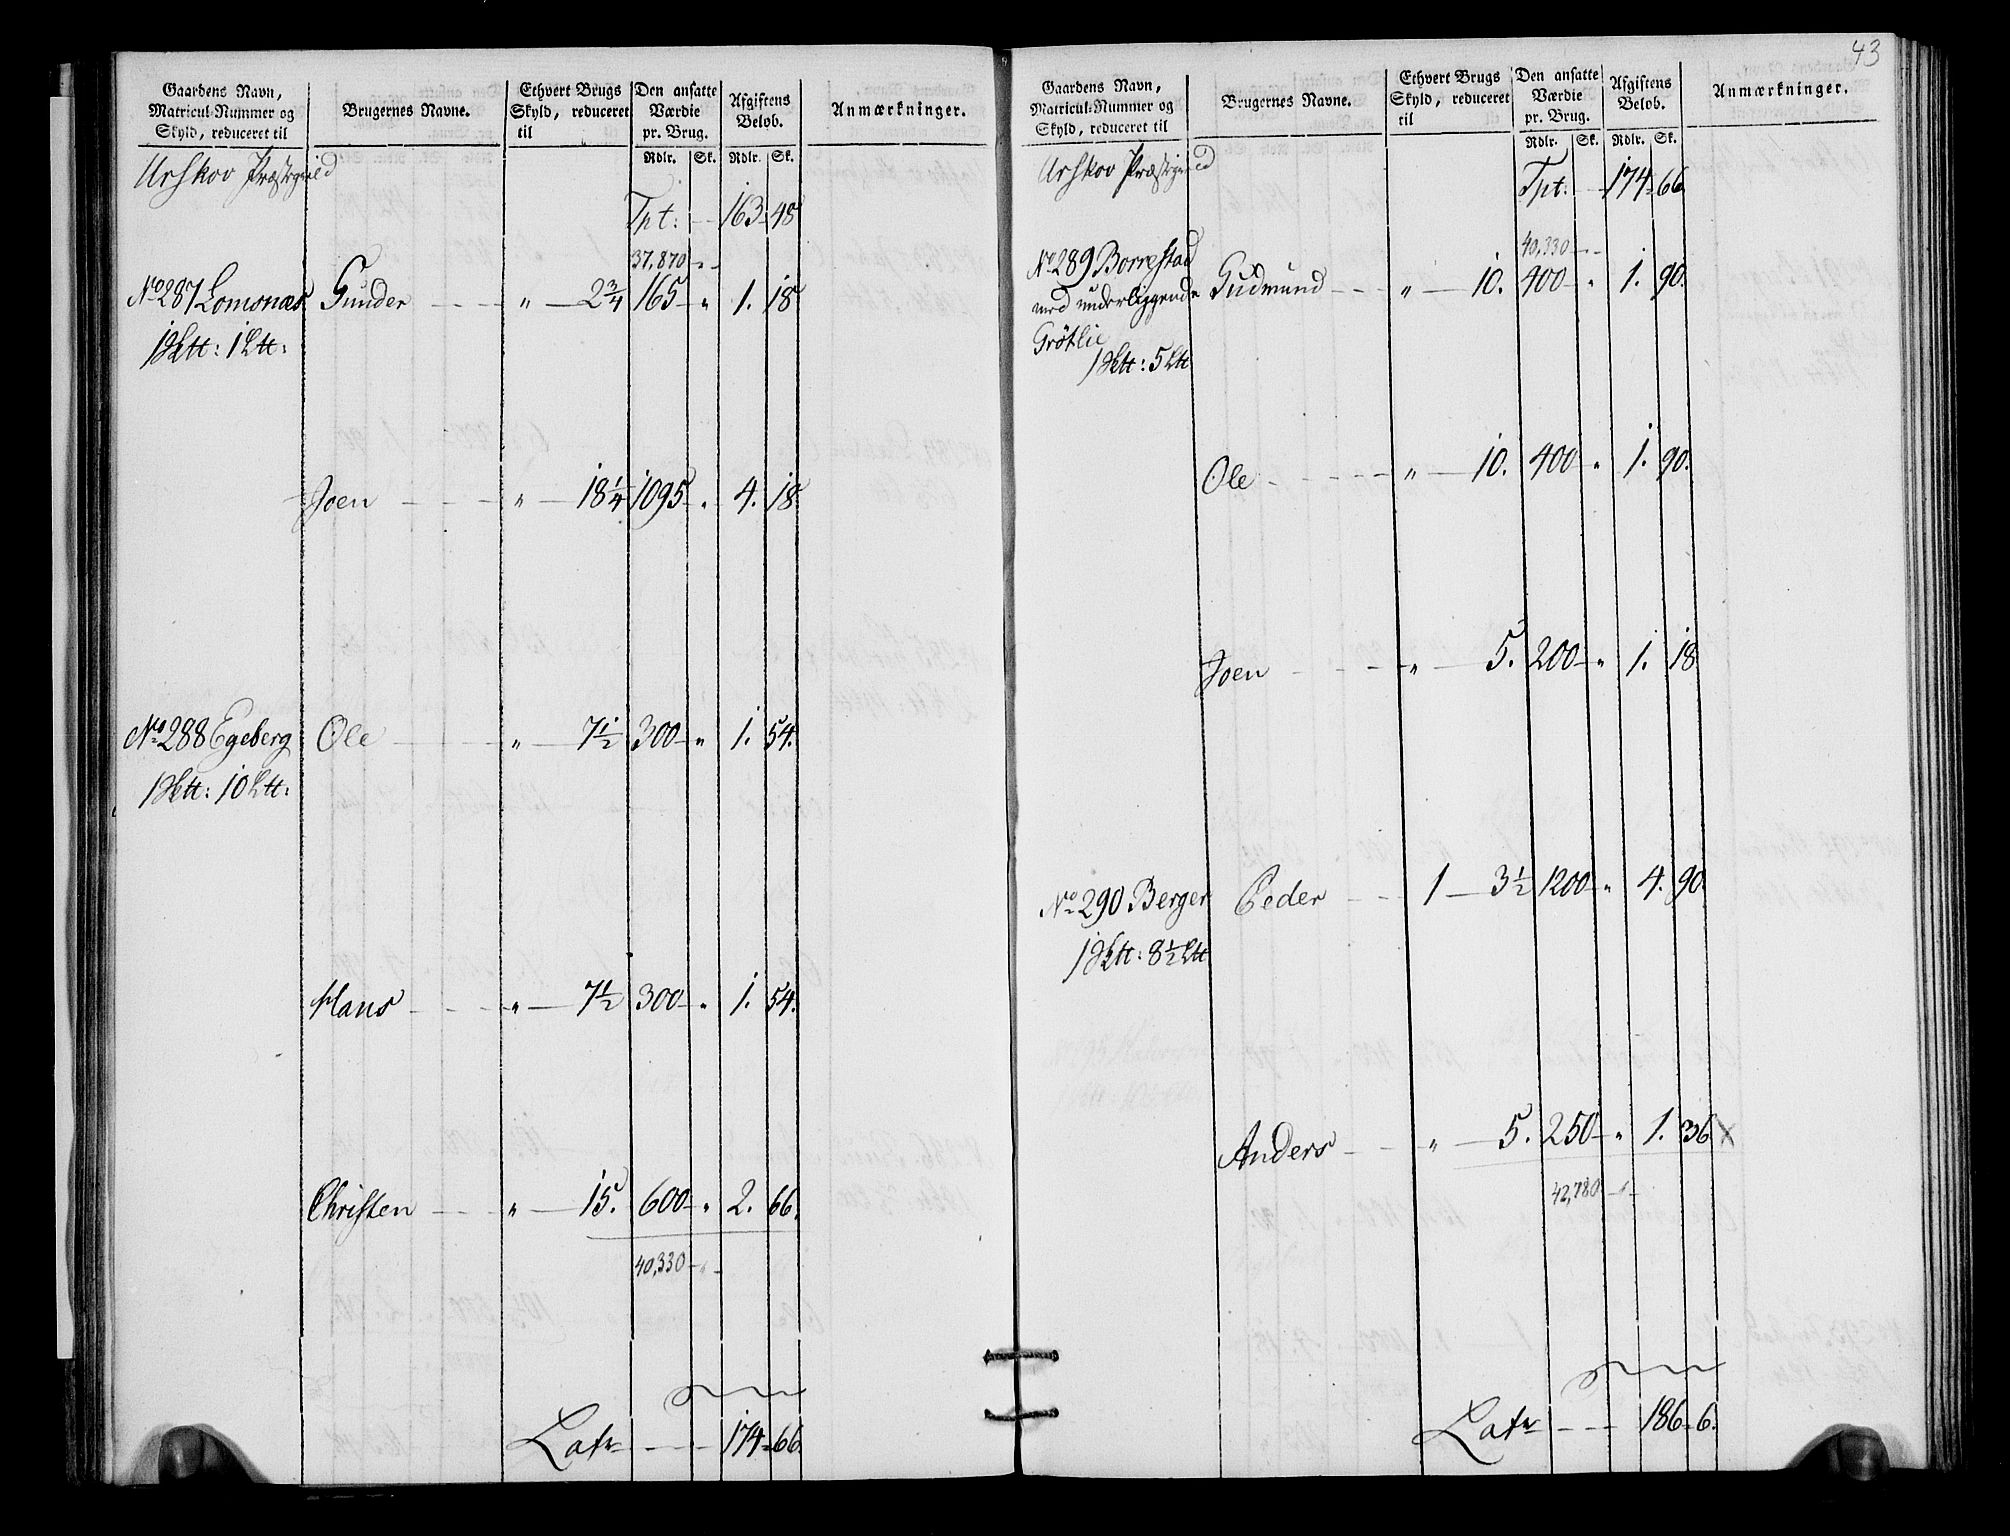 Gaardens Navn, Matricul-Nummer og Skyld, reduceret til | Brugernes Navne. | Ethvert Brugs Skyld, reduceret til | Den ansatte Værdie pr. Brug. Rdlr. Sk. | Afgiftens Beløb. Rdlr. Sk. | Anmærkninger.
Urskov Præstegield
Tpt: — 163 - 48
37,870 - " -
No 287 Lomsnæs Gunder — " — 2 3/4 165 - " 1. 18
1 Sktt: 1 Ltt:
Joen — " — 18 1/4 1095 - " 4. 18
No 288 Egeberg Ole — " — 7 1/2 300 - " 1. 54.
1 Sktt: 10 Ltt:
Hans — " — 7 1/2 300 - " 1. 54.
Christen — " — 15. 600 - " 2. 66.
40,330 - " -
Latr — 174 - 66.
43
Gaardens Navn, Matricul-Nummer og Skyld, reduceret til | Brugernes Navne. | Ethvert Brugs Skyld, reduceret til | Den ansatte Værdie pr. Brug. Rdlr. Sk. | Afgiftens Beløb. Rdlr. Sk. | Anmærkninger.
Urskov Præstegield
Tpt: — 174 - 66
40,330 - -
No 289 Borrestad Gudmund — " — 10. 400 - " 1. 90.
med underliggende
Grötlie
1 Sktt: 5 Ltt
Ole — " — 10. 400 - " 1. 90.
Joen — " — 5. 200 - " 1. 18
No 290 Berger Peder — 1 — 3 1/2 1200 - " 4. 90.
1 Sktt: 8 1/2 Ltt
Anders — " — 5. 250 - " 1. 36 X
42,780 - " -
Latr — 186 - 6.